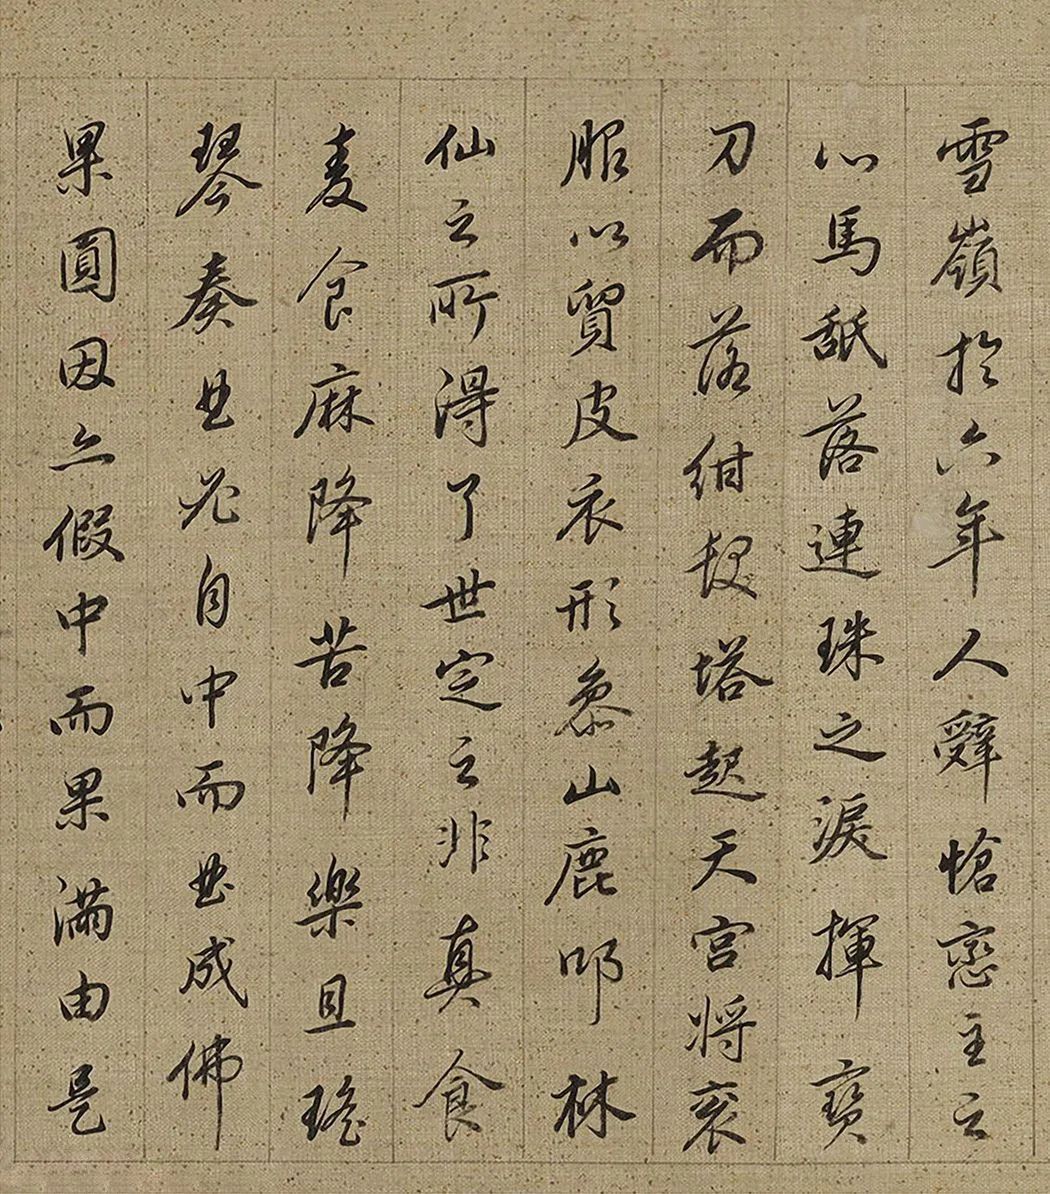 雪嶺於六年人辭愴戀主之
心馬舐落連珠之淚揮寶
刀而落紺髮塔起天宮將衮
服以貿皮衣形叅山鹿叩林
仙之所得了世定之非真食
麥食麻降苦降樂且瑤
琴奏曲必自中而曲成佛
果圓因亦假中而果滿由是